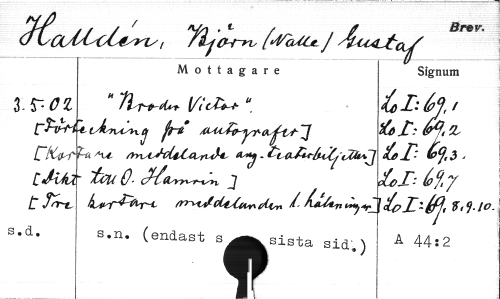 Halldén, Björn (Nalle) Gustaf Brev.
Mottagare Signum
3.5.02 "Broder Victor". Lo I:69,1
[Förteckning på autografer] Lo I:69,2
[Kortare meddelande ang. teaterbiljetter] Lo I:69,3.
[Dikt till O. Hamrin] Lo I:69,7
[Tre kortare meddelanden l. hälsningar] Lo I:69,8,9,10.
s.d. s.n. (endast s sista sid.) A 44:2